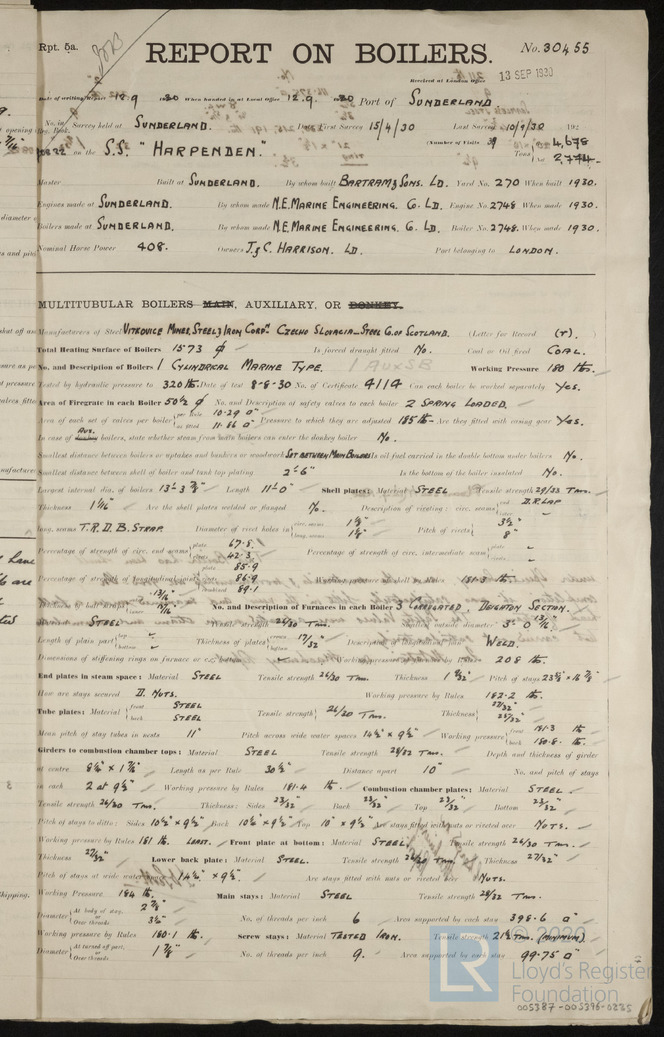 Rpt. 5a.
REPORT ON BOILERS.
No. 30455
Received at London Office
13 SEP 1930
Date of writing Report 18.9 1930 When handed in at Local Office 12.9. 1930 Port of SUNDERLAND
No. in Survey held at SUNDERLAND. Date, First Survey 15/4/30 Last Survey 10/9/30 192
Reg. Book.
on the S.S. "HARPENDEN." (Number of Visits 39 Tons 4,678
2,774
Master Built at SUNDERLAND. By whom built BARTRAM & SONS. LD. Yard No. 270 When built 1930.
Engines made at SUNDERLAND. By whom made N.E. MARINE ENGINEERING. Co. LD. Engine No. 2748 When made 1930.
Boilers made at SUNDERLAND. By whom made N.E. MARINE ENGINEERING. Co. LD. Boiler No. 2748. When made 1930.
Nominal Horse Power 408. Owners J. & C. HARRISON. LD. Port belonging to LONDON.
MULTITUBULAR BOILERS MAIN, AUXILIARY, OR DONKEY.
Manufacturers of Steel VITKOVICE MINES, STEEL & IRON CORPN. CZECHO SLOVACIA - STEEL Co. OF SCOTLAND. (Letter for Record (r).)
Total Heating Surface of Boilers 1573 Is forced draught fitted NO. Coal or Oil fired COAL.
No. and Description of Boilers 1 CYLINDRICAL MARINE TYPE. 1 Aux SB Working Pressure 180 lbs.
Tested by hydraulic pressure to 320 lbs. Date of test 8-8-30 No. of Certificate 4114 Can each boiler be worked separately YES.
Area of Firegrate in each Boiler 50½ No. and Description of safety valves to each boiler 2 SPRING LOADED.
Area of each set of valves per boiler per Rule 10.29 as fitted 11.86 Pressure to which they are adjusted 185 lbs Are they fitted with easing gear YES.
In case of AUX. donkey boilers, state whether steam from main boilers can enter the donkey boiler NO.
Smallest distance between boilers or uptakes and bunkers or woodwork SET BETWEEN MAIN BOILERS Is oil fuel carried in the double bottom under boilers NO.
Smallest distance between shell of boiler and tank top plating 2'-6" Is the bottom of the boiler insulated NO.
Largest internal dia. of boilers 13'-3⅞" Length 11'-0" Shell plates: Material STEEL Tensile strength 29/33 TONS.
Thickness 1 1/16" Are the shell plates welded or flanged NO. Description of riveting: circ. seams end D.R. LAP
long. seams T.R.D.B. STRAP. Diameter of rivet holes in circ. seams 1⅛" long. seams 1⅛" Pitch of rivets 3½" 8"
Percentage of strength of circ. end seams plate 67.8. rivets 42.3 Percentage of strength of circ. intermediate seam
Percentage of strength of longitudinal joint plate 85.9 rivets 86.9 combined 89.1 Working pressure of shell by Rules 181.3 lbs.
No. and Description of Furnaces in each Boiler 3 CORRUGATED, DEIGHTON SECTION.
Material STEEL Tensile strength 26/30 TONS. Smallest outside diameter 3'-0 13/16"
Length of plain part top bottom Thickness of plates crown bottom 17/32" Description of longitudinal joint WELD.
Dimensions of stiffening rings on furnace or c.c. bottom Working pressure of furnace by Rules 208 lbs.
End plates in steam space: Material STEEL Tensile strength 26/30 TONS. Thickness 1 9/32" Pitch of stays
How are stays secured D. NUTS. Working pressure by Rules 182.2 lbs.
Tube plates: Material front STEEL back STEEL Tensile strength 26/30 TONS. Thickness 27/32"
Mean pitch of stay tubes in nests 11" Pitch across wide water spaces 14½" x 9½" Working pressure front 181.3 lbs. back 180.8 lbs.
Girders to combustion chamber tops: Material STEEL Tensile strength 28/32 TONS. Depth and thickness of girder
at centre 8¼" x 1⅞" Length as per Rule 30½" Distance apart 10" No. and pitch of stays
in each 2 at 9½" Working pressure by Rules 181.4 lbs. Combustion chamber plates: Material STEEL.
Tensile strength 26/30 TONS. Thickness: Sides 23/32" Back 23/32" Top 23/32" Bottom 23/32"
Pitch of stays to ditto: Sides 10½" x 9½" Back 10½" x 9½" Top 10" x 9½" Are stays fitted with nuts or riveted over NUTS.
Working pressure by Rules 181 lbs. LEAST. Front plate at bottom: Material STEEL. Tensile strength 26/30 TONS.
Thickness 27/32" Lower back plate: Material STEEL. Tensile strength 26/30 TONS. Thickness 27/32"
Pitch of stays at wide water space 14½" x 9½" Are stays fitted with nuts or riveted over NUTS.
Working Pressure 184 lbs. Main stays: Material STEEL Tensile strength 28/32 TONS.
Diameter At body of stay, 2⅞" or Over threads 3½" No. of threads per inch 6 Area supported by each stay 398.6
Working pressure by Rules 180.1 lbs. Screw stays: Material TESTED IRON. Tensile strength 21½ TONS. (MINIMUM)
Diameter At turned off part, or Over threads 1⅞" No. of threads per inch 9. Area supported by each stay 99.75
© 2020
LR
Lloyd's Register
Foundation
005387-005396-0235